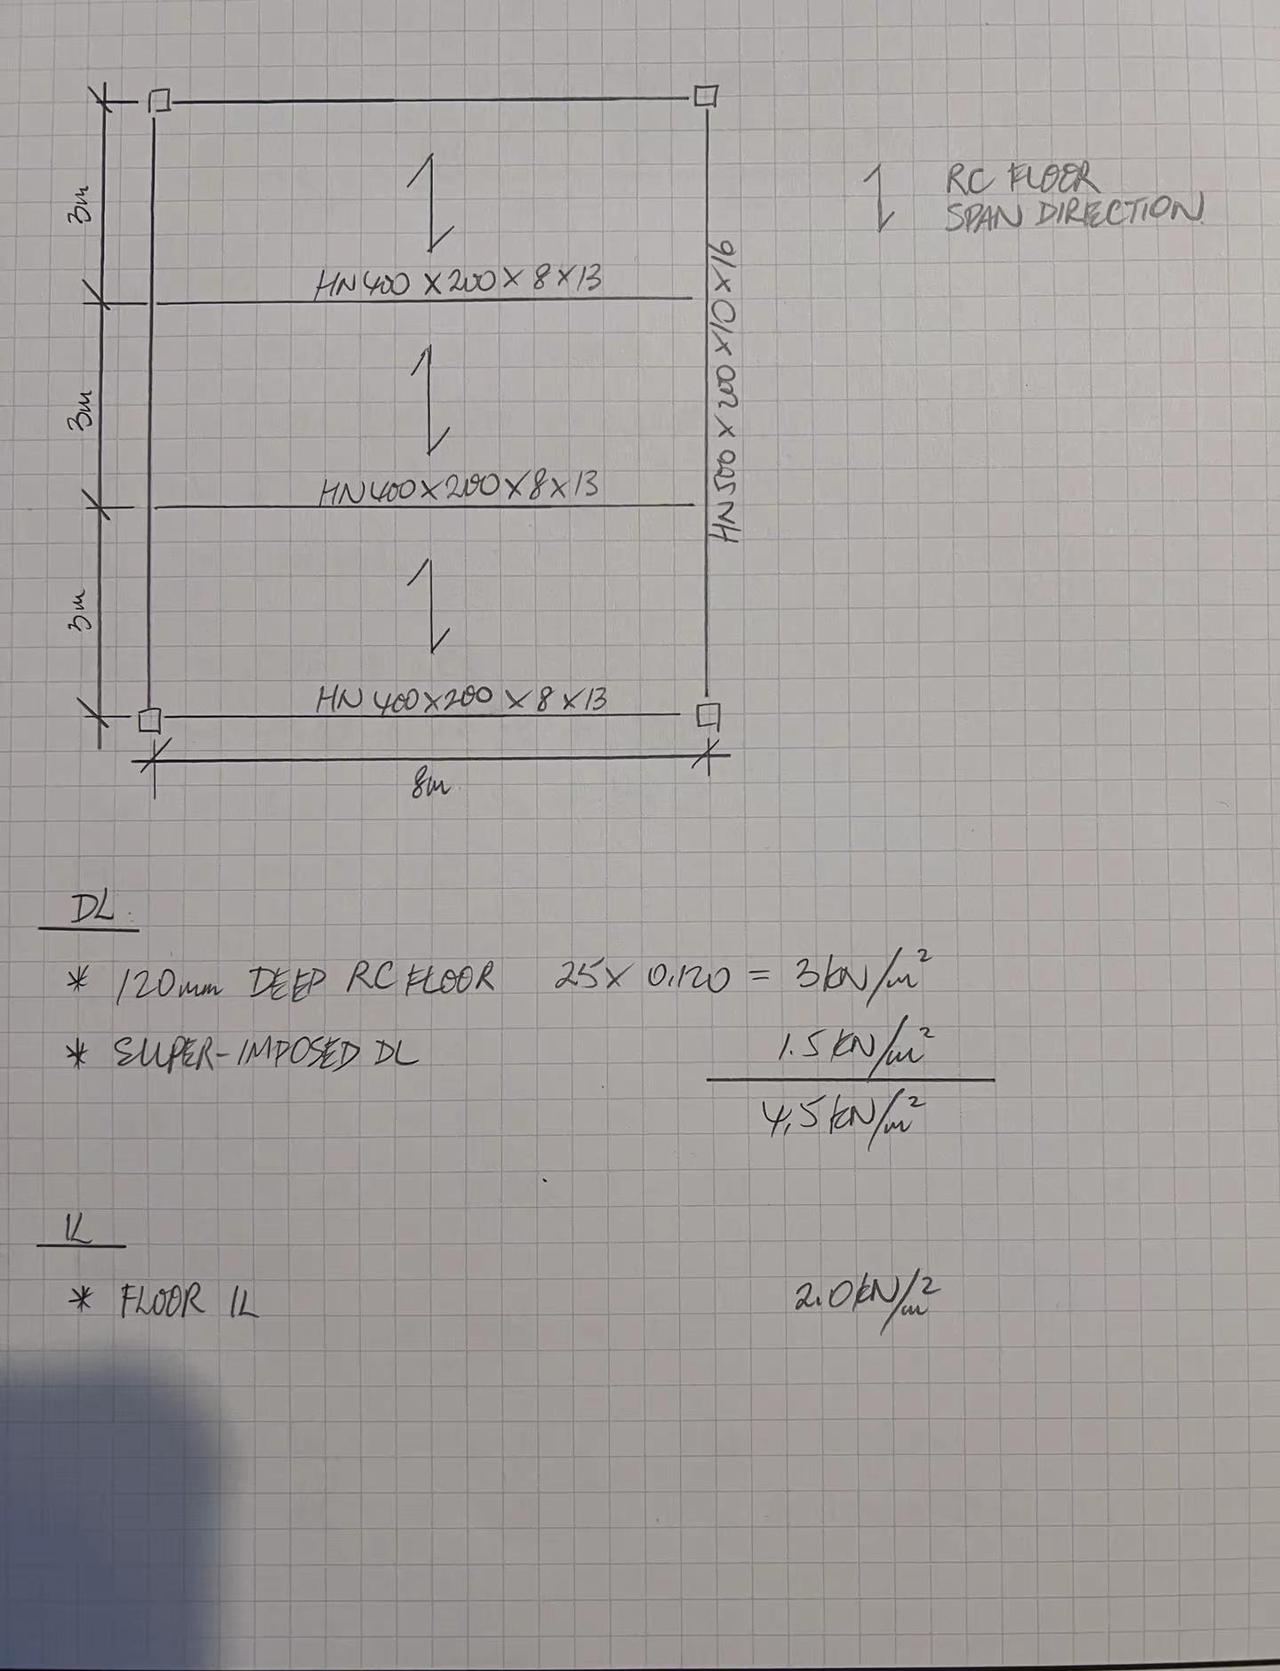 3m
RC FLOOR
SPAN DIRECTION
HN 400 X 200 X 8 X 13
3m
HN 400 X 200 X 8 X 13
HN 500 X 200 X 10 X 16
3m
HN 400 X 200 X 8 X 13
8m
DL
* 120mm DEEP RC FLOOR 25 X 0.120 = 3 kN/m²
* SUPER-IMPOSED DL 1.5 kN/m²
4.5 kN/m²
IL
* FLOOR IL 2.0 kN/m²